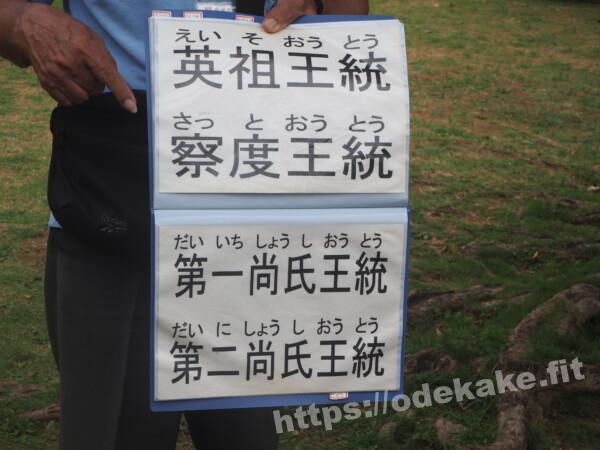 えい そ おう とう
英祖王統
さっ と おう とう
察度王統
だい いち しょう し おう とう
第一尚氏王統
だい に しょう し おう とう
第二尚氏王統
https://odekake.fit